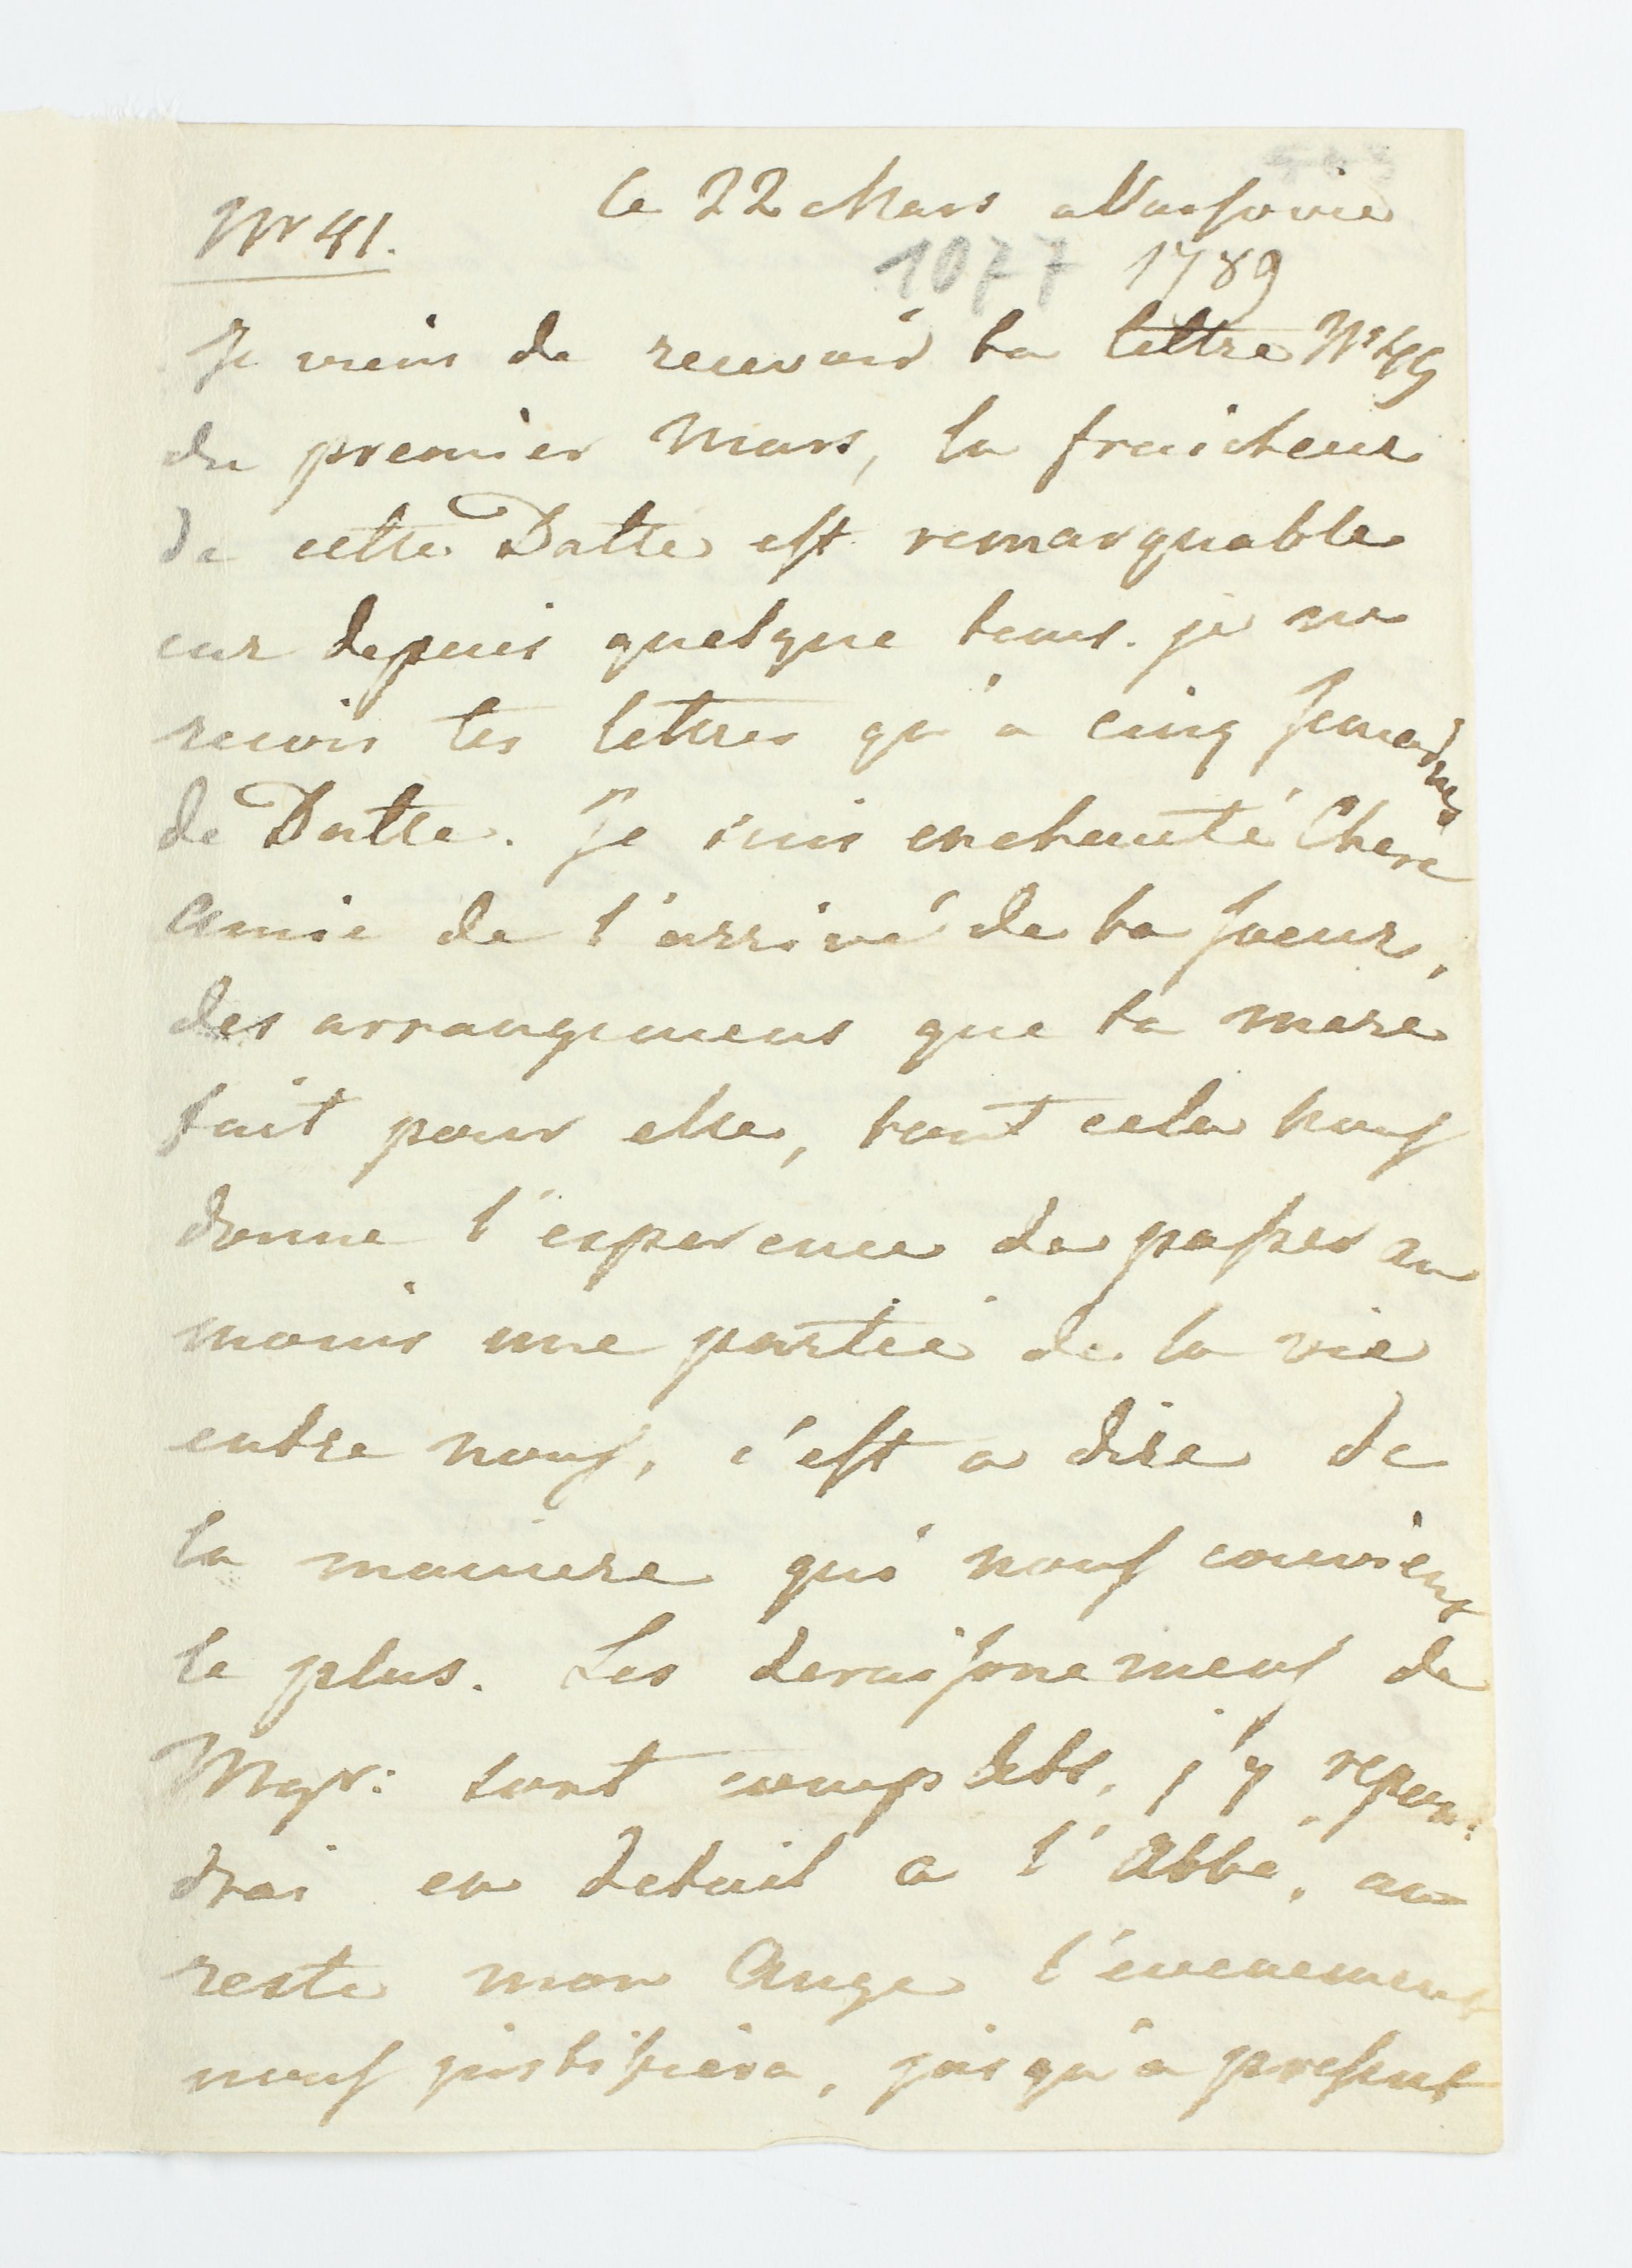 Nr 41.
le 22 Mars a Varsovie
1077 1789
Je viens de recevoir ta lettre Nr 49
du premier Mars, la fraicheur
de cette Datte est remarquable
car depuis quelque tems je ne
recois tes lettres qu'a cinq semaines
de Datte. Je suis enchanté Chere
Amie de l'arrivé de ta soeur,
des arrangemens que ta mere
fait pour elle, tout cela nous
donne l'esperence de passer au
moins une partie de la vie
entre nous, c'est a dire de
la maniere qui nous convient
le plus. Les deraisonemens de
Mgr: sont complets, j'y repon:
drai en detail a l'Abbé, au
reste mon Ange l'evenement
nous justifiera, jusqu'a present